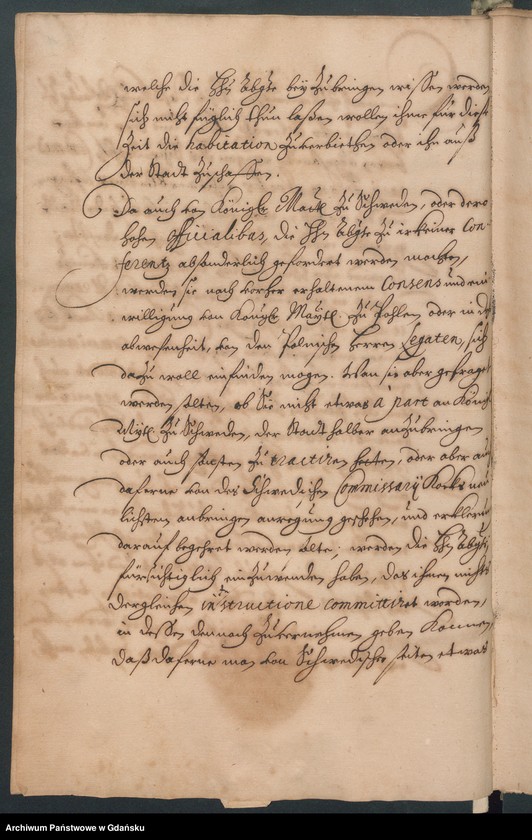 welche die Hhn Abgte beyzubringen wissen werden
sich nicht füglich thun laßen wollen ihme für diese
Zeit die habitation zu verbiethen oder ihn auß
der Stadt zuschaffen.
Da auch von Königl Maytt zu Schweden, oder dero
hohen officialibus, die Hhn Abgte zu irkeiner Con-
ferentz absonderlich gefordert werden mochten,
werden sie nach vorher erhaltenem Consens und ein
willigung von Königl Maytt. zu Pohlen oder in der
abwesenheit, von den Polnischen Herren Legaten, sich
dazu woll einfinden mögen. Wan sie aber gefraget
werden solten, ob Sie nicht etwas à part an Königl
Maytt zu Schweden, der Stadt halber anzubringen
oder auch sonsten zu tractiren hetten, oder aber auch
daferne von des Schwedischen Commissarij Kocks neu
lichstem anbringen anregung geschehen, und erklerung
darauf begehret werden solte; werden die Hhn Abgte
fürsichtiglich einzuwenden haben, das ihnen nichts
dergleichen in instructione committiret worden,
in dessen dennoch zuvernehmen geben können,
daß daferne man von Schwedischer seiten etwas
Archiwum Państwowe w Gdańsku